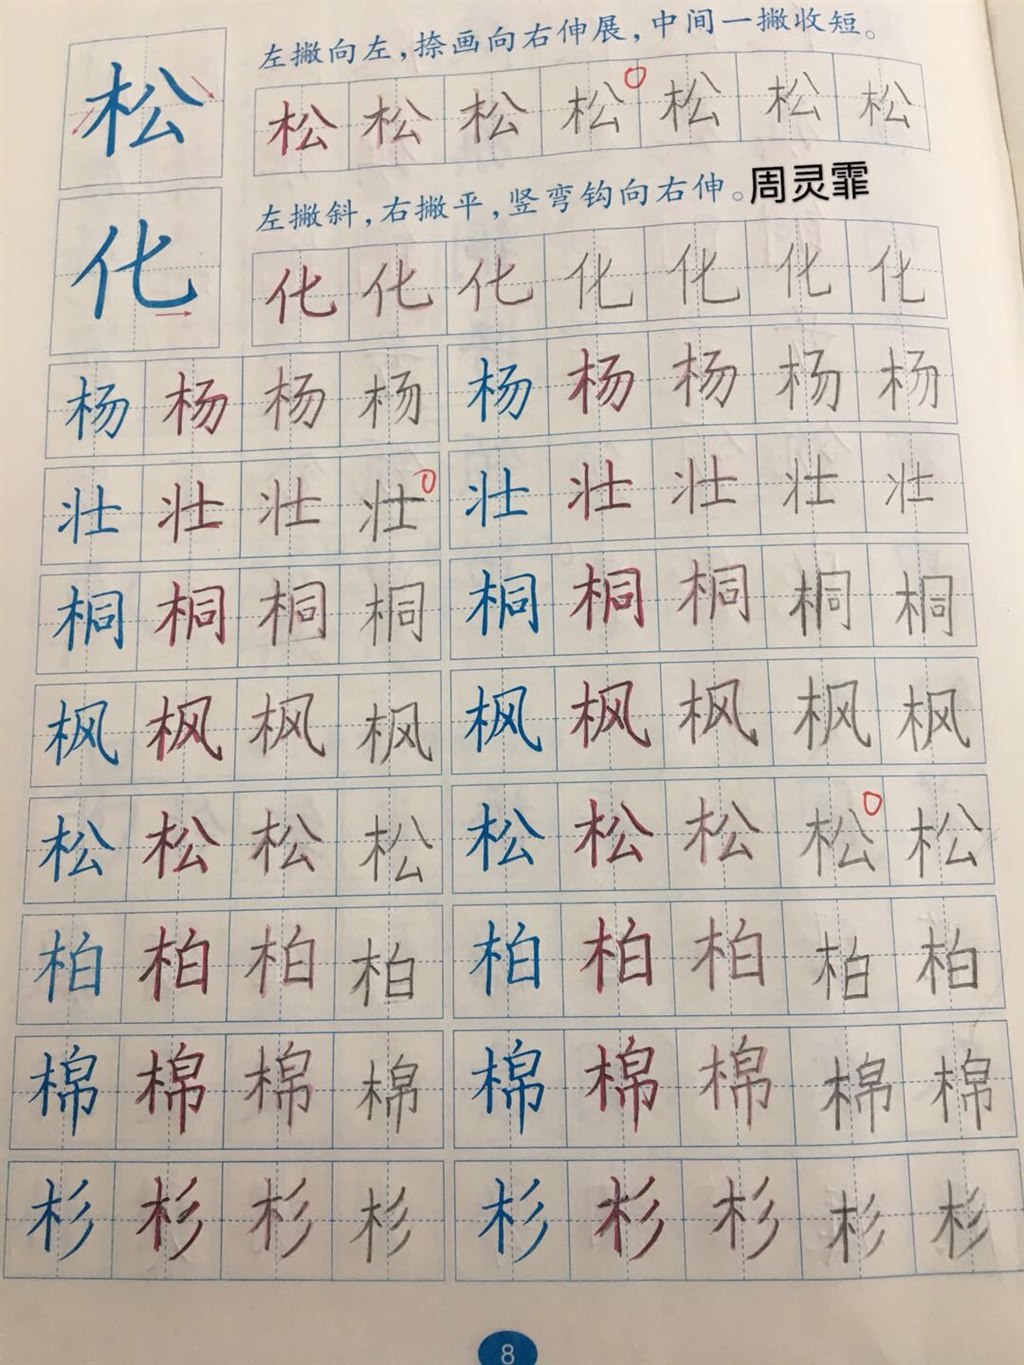 松 左撇向左，捺画向右伸展，中间一撇收短。
松 松 松 松 松 松 松
化 左撇斜，右撇平，竖弯钩向右伸。周灵霏
化 化 化 化 化 化 化
杨 杨 杨 杨 杨 杨 杨 杨 杨
壮 壮 壮 壮 壮 壮 壮 壮 壮
桐 桐 桐 桐 桐 桐 桐 桐 桐
枫 枫 枫 枫 枫 枫 枫 枫 枫
松 松 松 松 松 松 松 松 松
柏 柏 柏 柏 柏 柏 柏 柏 柏
棉 棉 棉 棉 棉 棉 棉 棉 棉
杉 杉 杉 杉 杉 杉 杉 杉 杉
8